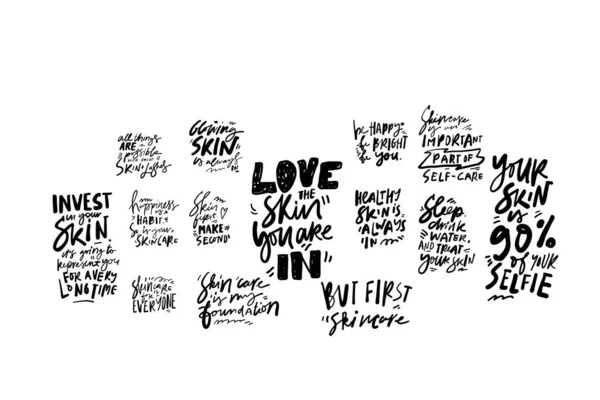 all things
ARE
possible
with coffee &
SKIN & Lashes
Glowing
SKIN
is always
in
be HAPPY
be BRIGHT
be YOU.
Skincare
is an
IMPORTANT
PART OF
SELF-CARE
INVEST
in your
SKIN
it's going to
represent you
FOR A VERY
LONG TIME
happiness
is a
HABIT.
So is your
SKINCARE
Skin
first
MAKE up
SECOND
LOVE
THE
Skin
you are
IN
HEALTHY
SKIN IS
ALWAYS
IN
Sleep.
drink
WATER.
AND TREAT
your SKIN
YOUR
SKIN
is
90%
of YOUR
SELFIE
Skincare
for is
EVERYONE
Skin care
is my
foundation
BUT FIRST
skincare